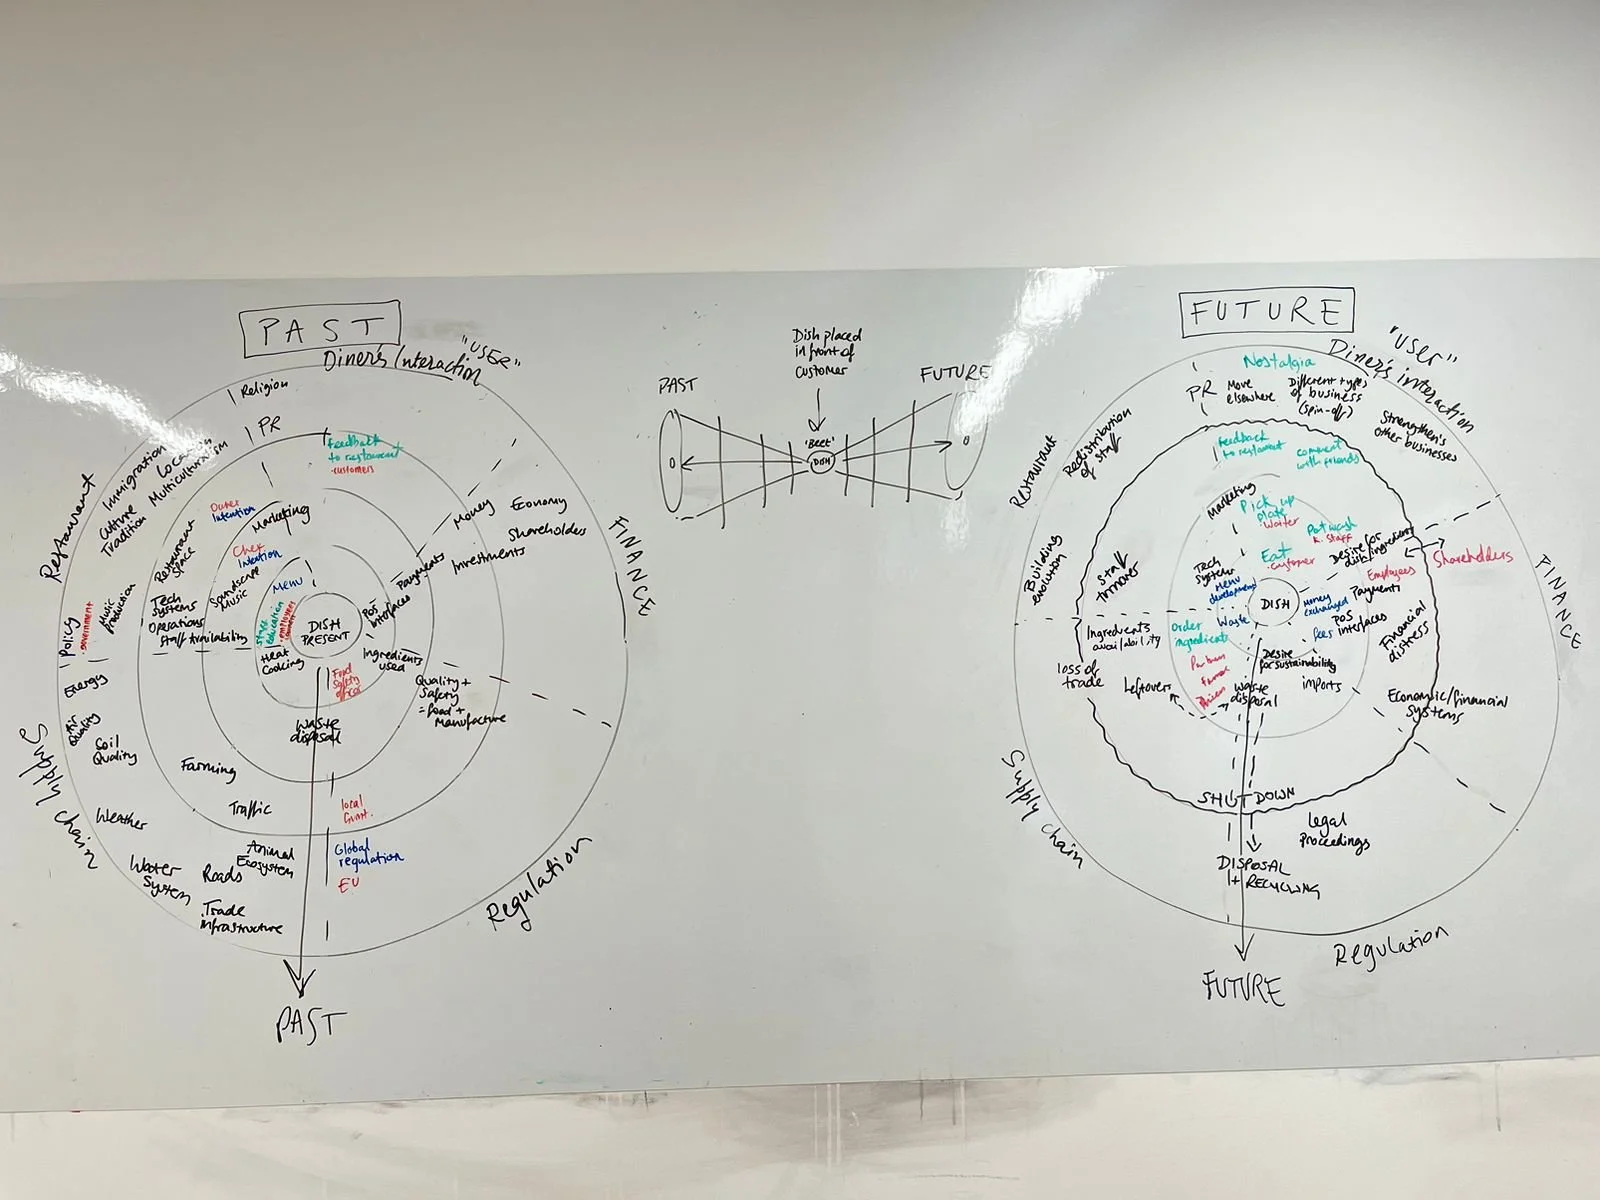 PAST
"USER"
Diner's Interaction
Religion
PR
Feedback
to restaurant
·customers
Immigration
Location
Multiculturalism
Culture
Tradition
Restaurant
Restaurant
Space
Outer
Intention
Marketing
Chef
Intention
Soundscape
Music
Menu
Music
Production
Tech
Systems
Operations
Staff Availability
Staff
education
·employees
Policy
·government
Heat
Cooking
DISH
PRESENT
POS
interfaces
Payments
Money
Economy
Shareholders
Investments
FINANCE
Ingredients
used
Food
Safety
Quality +
Safety
= food +
Manufacture
Energy
Air
Quality
Soil
Quality
Supply chain
Waste
disposal
Farming
Traffic
Weather
local
Gvmt.
Animal
Ecosystem
Global
regulation
EU
Water
System
Roads
Trade
infrastructure
Regulation
PAST
Dish placed
in front of
customer
PAST
FUTURE
'Beet'
DISH
FUTURE
"USER"
Diner's interaction
Nostalgia
PR
Move
elsewhere
Different types
of business
(spin-off)
Strengthens
other businesses
Redistribution
of staff
Restaurant
Feedback
to restaurant
comment
with friends
Marketing
Pick up
plate
·Waiter
Potwash
K. Staff
Building
evolution
Staff
turnover
Tech
Systems
Menu
development
Eat
·customer
Desire for
dish/ingredient
Employees
Shareholders
FINANCE
DISH
Payments
Money
exchanged
POS
interfaces
fees
Financial
distress
Ingredients
availability
Order
ingredients
Waste
loss of
trade
Leftovers
Desire
for sustainability
imports
Waste
disposal
Economic/financial
Systems
Supply chain
SHUTDOWN
Legal
Proceedings
DISPOSAL
+ RECYCLING
Regulation
FUTURE